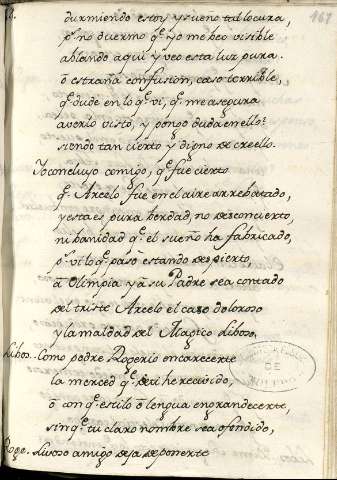 167
durmiendo estoy y sueño tal locura,
pº no duermo q̃ yo me beo visible
ablando aqui y veo esta luz pura.
ō estraña confusion, caso terrible,
q̃ dude en lo q̃ vi, q̃ me asegura
averlo visto, y pongo duda en ello:
siendo tan cierto y digno de creello.
Yo concluyo comigo, q̃ fue cierto
q̃ Arcelo fue en el aire arrebatado,
y esta es pura berdad, no desconcierto,
ni banidad q̃ el sueño ha fabricado,
pº vi lo q̃ paso estando despierto
ā Olimpia y a su Padre sea contado
del triste Arcelo el caso doloroso
y la maldad del Magico Liboso,
Libos. Como podre Rogerio encarecerte
la merced q̃ de ti he recivido,
ō con q̃ estilo ō lengua engrandecerte,
sin q̃ tu claro nombre sea ofendido,
Roge. Livoso amigo deja de ponerte
DE